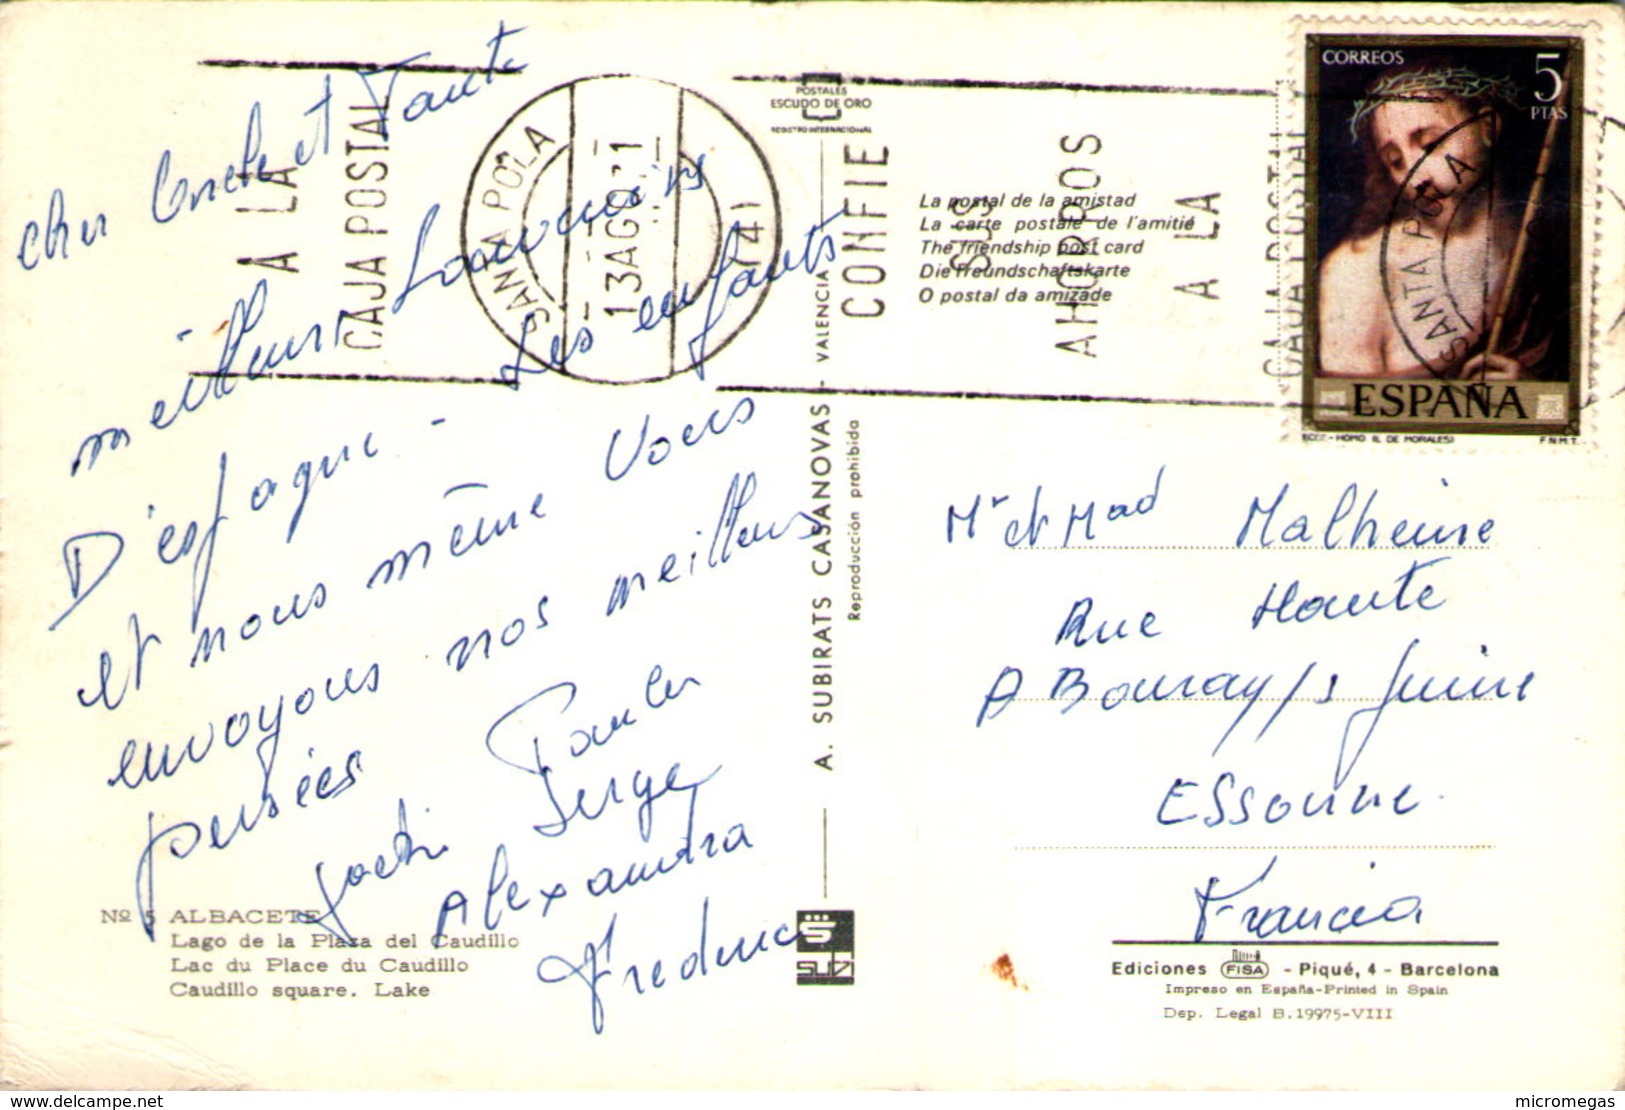 cher Oncle et Tante
meilleurs Souvenirs
D'espagne - Les enfants
et nous même Vous
envoyons nos meilleurs
pensées
Serge
Alexandra
Frederic
Nº 5 ALBACETE
Lago de la Plaza del Caudillo
Lac du Place du Caudillo
Caudillo square. Lake
A LA
CAJA POSTAL
SANTA POLA
13 AGO 71
(41)
POSTALES
ESCUDO DE ORO
REGISTRO INTERNACIONAL
A. SUBIRATS CASANOVAS - VALENCIA
Reproducción prohibida
CONFIE
SUS
AHORROS
A LA
CAJA POSTAL
La postal de la amistad
La carte postale de l'amitié
The friendship post card
Die Freundschaftskarte
O postal da amizade
CORREOS
5
PTAS
SANTA POLA
ESPAÑA
ECCE-HOMO (L. DE MORALES)
F.N.M.T.
Mr et Mad Malheure
Rue Haute
A Bouray/s Juine
ESSonne
Francia
SUBI
Ediciones FISA - Piqué, 4 - Barcelona
Impreso en España-Printed in Spain
Dep. Legal B. 19975-VIII
www.delcampe.net
micromegas